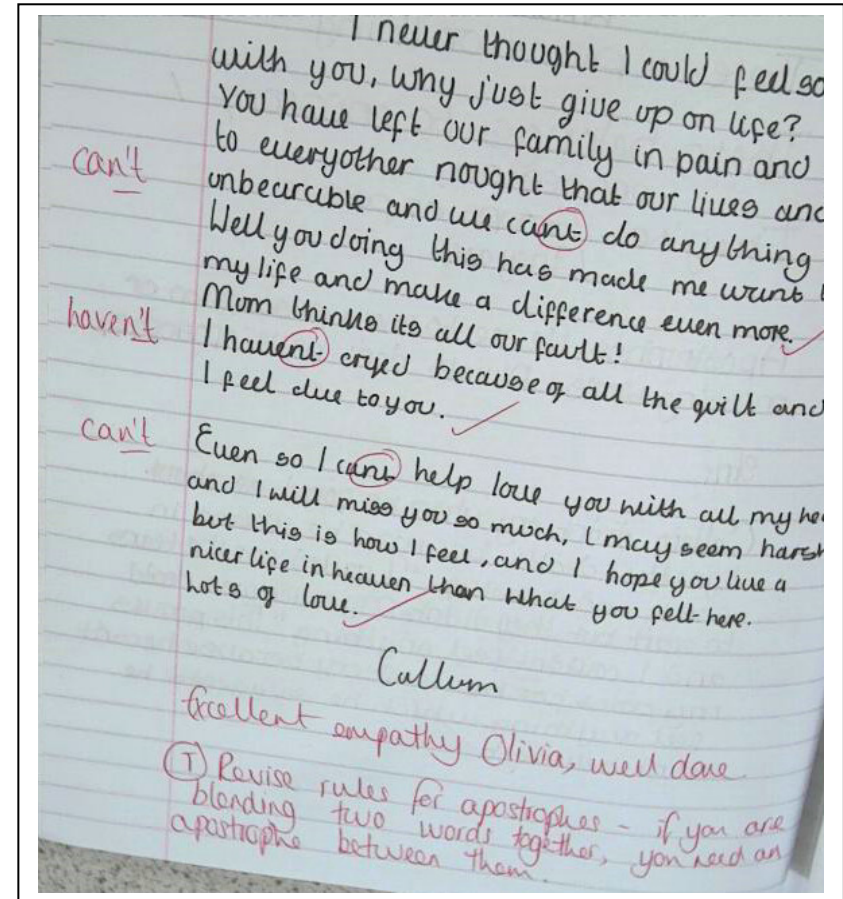 I never thought I could feel so
with you, why just give up on life?
You have left our family in pain and
can't
to everyother nought that our lives and
unbearable and we cant do anything
Well you doing this has made me want
my life and make a difference even more.
haven't
Mom thinks its all our fault!
I havent cryed because of all the guilt and
I feel due to you.
can't
Even so I cant help love you with all my he
and I will miss you so much, I may seem harsh
but this is how I feel, and I hope you live a
nicer life in heaven than what you felt here.
Lots of love.
Callum
Excellent empathy Olivia, well done
T Revise rules for apostrophes - if you are
blending two words together, you need an
apostrophe between them.